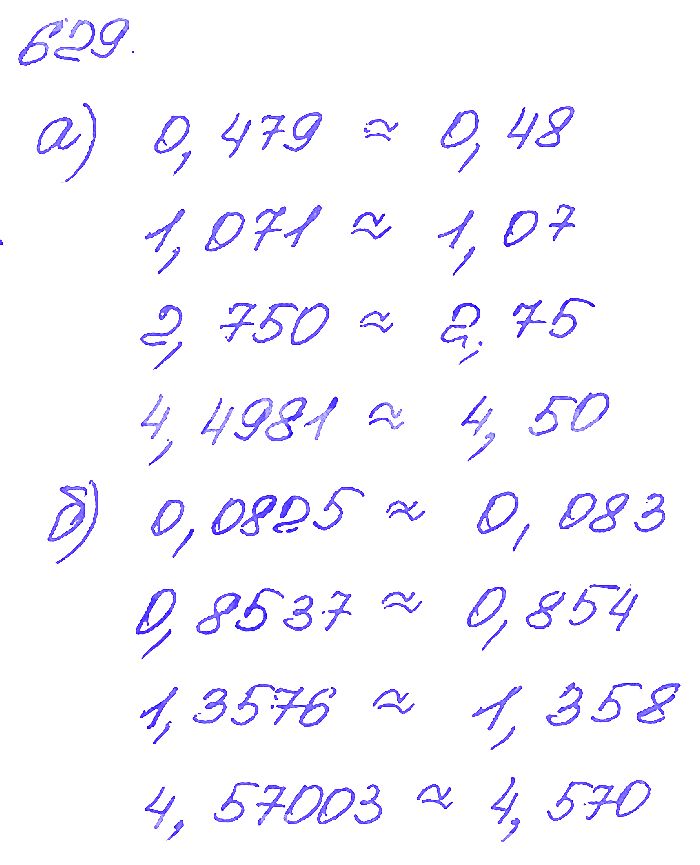 629.
а) 0,479 ≈ 0,48
1,071 ≈ 1,07
2,750 ≈ 2,75
4,4981 ≈ 4,50
б) 0,0825 ≈ 0,083
0,8537 ≈ 0,854
1,3576 ≈ 1,358
4,57003 ≈ 4,570